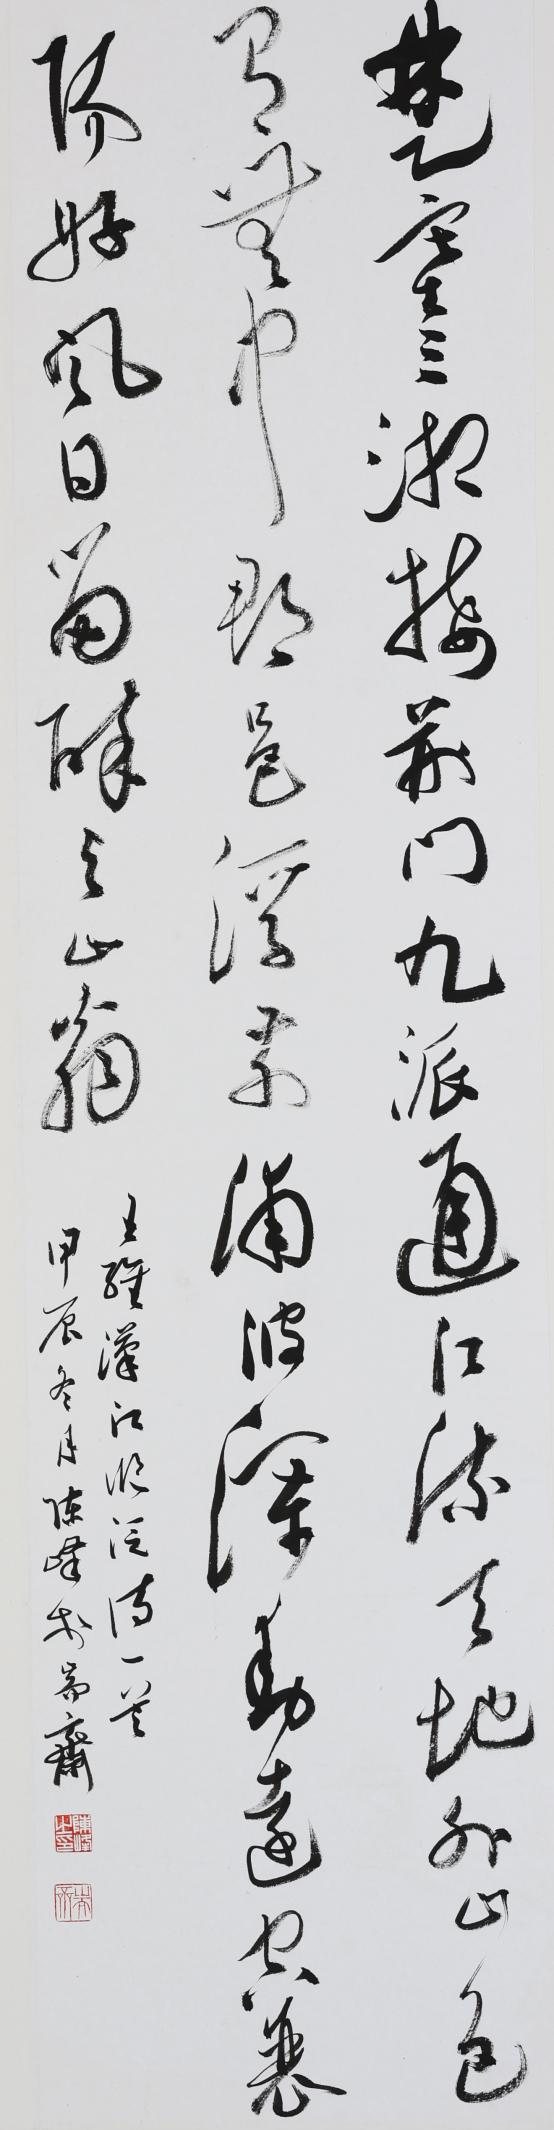 楚塞三湘接荊門九派通江流天地外山色
有無中郡邑浮前浦波瀾動遠空襄
陽好風日留醉与山翁
王維漢江臨泛詩一首
甲辰冬月陳峰於耑齋
陳峰之印